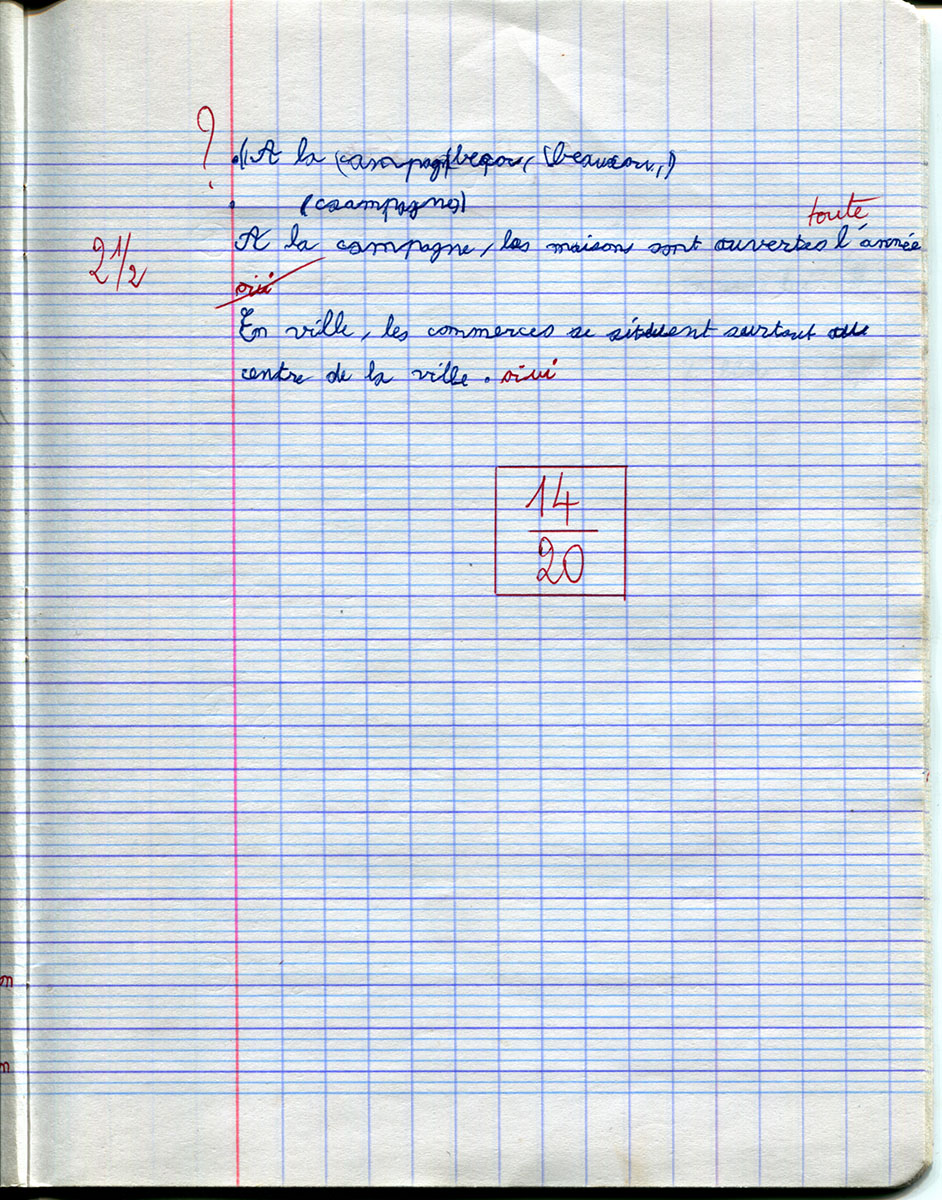 ?
(A la (campag(becou, (beaucou,)
(caampagne)
toute
2 1/2
A la campagne, les maison sont ouvertes l'année
oui
En ville, les commerces se situent surtout au
centre de la ville. oiui
14
20